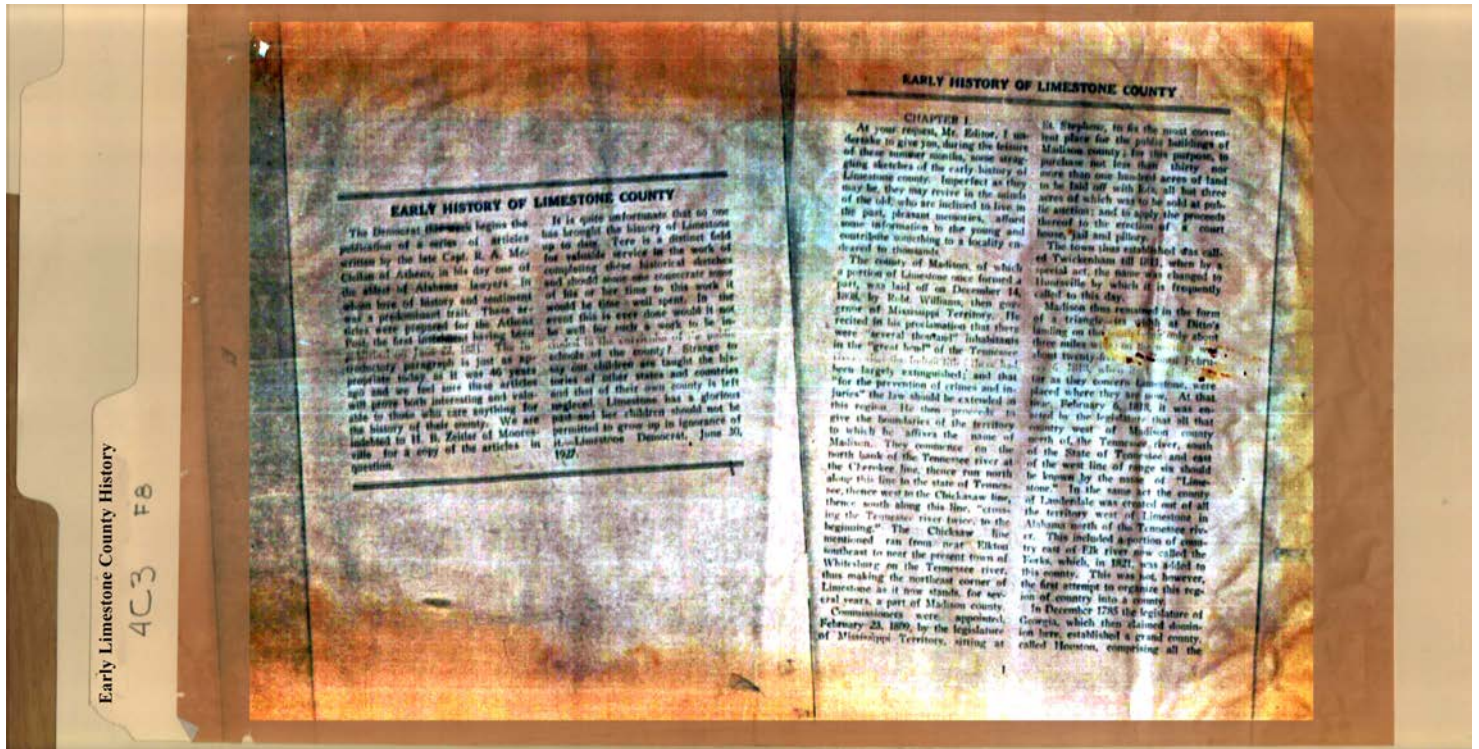 Early Limestone County History
4C3 F8
EARLY HISTORY OF LIMESTONE COUNTY
The Democrat begins the
publication of a series of articles
written by the late Capt. R. A. Mc-
Clellan of Athens, in his day one of
the ablest of Alabama's lawyers in
whom love of history and sentiment
was a predominant trait. These ar-
ticles were prepared for the Athens
Post, the first one
introductory paragraph is just as ap-
propriate today as it was 46 years
ago and we feel sure these articles
will prove both interesting and valu-
able to those who care anything for
the history of their county. We are
indebted to H. in Zeitler of Moores-
ville for a copy of the articles in
question.
It is quite unfortunate that no one
has brought the history of Limestone
up to date. Here is a distinct field
for valuable service in the work of
completing these historical sketches
and should some one consecrate some
of his or her time to this work it
would be time well spent. In the
event this is ever done would it not
be well for such a work to be
schools of the county? Strange to
say our children are taught the his-
tories of other states and countries
and that of their own county is left
neglected. Limestone has a glorious
past and her children should not be
permitted to grow up in ignorance of
it.—Limestone Democrat, June 30,
1927.
EARLY HISTORY OF LIMESTONE COUNTY
CHAPTER I.
At your request, Mr. Editor, I un-
dertake to give you, during the leisure
of these summer months, some strag-
gling sketches of the early history of
Limestone county. Imperfect as they
may be, they may revive in the minds
of the old, who are inclined to live in
the past, pleasant memories, afford
some information to the young and
contribute something to a locality en-
deared to thousands.
The county of Madison, of which
a portion of Limestone once formed a
part, was laid off on December 14,
1808, by Robt. Williams, then gov-
ernor of Mississippi Territory. He
recited in his proclamation that there
were "several thousand" inhabitants
in the "great bend" of the Tennes-
been largely extinguished; and that
"for the prevention of crimes and in-
juries" the law should be extended to
this region. He then proceeds to
give the boundaries of the territory
to which he affixes the name of
Madison. They commence on the
north bank of the Tennessee river at
the Cherokee line, thence run north
along this line to the state of Tennes-
see, thence west to the Chickasaw line,
thence south along this line, "cross-
ing the Tennessee river twice, to the
beginning." The Chickasaw line
mentioned ran from near Elkton
southeast to near the present town of
Whitesburg on the Tennessee river,
thus making the northeast corner of
Limestone as it now stands, for sev-
eral years, a part of Madison county.
Commissioners were appointed,
February 23, 1809, by the legislature
of Mississippi Territory, sitting at
St. Stephens, to fix the most conven-
ient place for the public buildings of
Madison county; for this purpose, to
purchase not less than thirty nor
more than one hundred acres of land
to be laid off with lots, all but three
acres of which was to be sold at pub-
lic auction; and to apply the proceeds
thereof to the erection of a court
house, jail and pillory.
The town thus established was call-
ed Twickenham till 1811, when by a
special act, the name was changed to
Huntsville, by which it is frequently
called to this day.
Madison county was in the form
of a triangle
landing
miles
twenty
far as they concern Limestone, were
placed where they now are. At that
place, February 6, 1818, it was en-
acted by the legislature that all that
country west of Madison county
south of the Tennessee river, south
of the State of Tennessee and east
of the west line of range six should
be known by the name of "Lime-
stone." In the same act the county
of Lauderdale was created out of all
the territory west of Limestone in
Alabama north of the Tennessee riv-
er. This included a portion of coun-
try east of Elk river now called the
Forks, which, in 1821, was added to
this county. This was not, however,
the first attempt to organize this reg-
ion of country into a county.
In December 1785 the legislature of
Georgia, which then claimed domin-
ion here, established a grand county,
called Houston, comprising all the
1